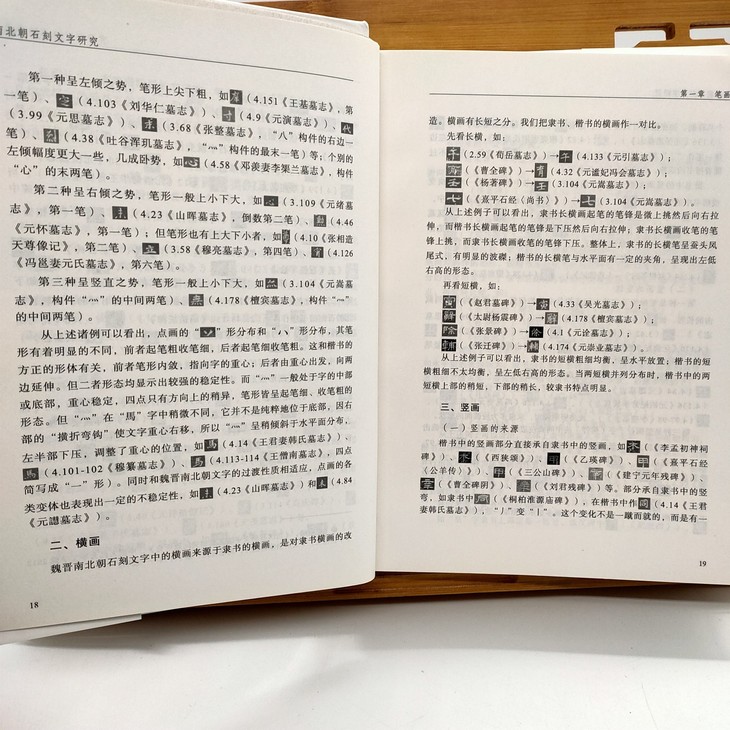 南北朝石刻文字研究
第一种呈左倾之势，笔形上尖下粗，如（4.151《王基墓志》，第
一笔）、（4.103《刘华仁墓志》）、（4.9《元演墓志》）、
（3.99《元思墓志》）、（3.68《张整墓志》，“八”构件的右边一
笔）、（4.38《吐谷浑玑墓志》，“灬”构件的最末一笔）等；个别的
左倾幅度更大一些，几成卧势，如（4.58《邓羡妻李榘兰墓志》，构件
“心”的末两笔）。
第二种呈右倾之势，笔形一般上小下大，如（3.109《元绪墓
志》，第一笔）、（4.23《山晖墓志》，倒数第二笔）、（4.46
《元怀墓志》，第一笔）；但笔形也有上大下小者，如（4.10《张相造
天尊像记》，第二笔）、（3.58《穆亮墓志》，第四笔）、（4.126
《冯邕妻元氏墓志》，第六笔）。
第三种呈竖直之势，笔形一般上小下大，如（3.104《元嵩墓
志》，构件“灬”的中间两笔）、（4.178《檀宾墓志》，构件“灬”
的中间两笔）。
从上述诸例可以看出，点画的“”形分布和“八”形分布，其笔
形有着明显的不同，前者起笔粗收笔细，后者起笔细收笔粗。这和楷书的
方正的形体有关，前者笔形内敛，指向字的重心；后者由重心出发，向两
边延伸。但二者形态均显示出较强的稳定性。而“灬”一般处于字的中部
或底部，重心稳定，四点只有方向上的稍异，笔形皆呈起笔细、收笔粗的
形态。但“灬”在“馬”字中稍微不同，它并不是纯粹地位于底部，因右
部的“横折弯钩”使文字重心右移，所以“灬”呈稍倾斜于水平面分布、
左半部下压，调整了重心的位置，如（4.14《王君妻韩氏墓志》）、
（4.101-102《穆纂墓志》）、（4.113-114《王僧南墓志》，四点
简写成“一”形）。同时和魏晋南北朝文字的过渡性质相适应，点画的各
类变体也表现出一定的不稳定性，如（4.23《山晖墓志》）和（4.84
《元譿墓志》）。
二、横画
魏晋南北朝石刻文字中的横画来源于隶书的横画，是对隶书横画的改
18
第一章　笔画
造。横画有长短之分。我们把隶书、楷书的横画作一对比。
先看长横，如：
（2.59《荀岳墓志》）→（4.133《元引墓志》）；
（《曹全碑》）→（4.32《元谧妃冯会墓志》）；
（《杨著碑》）→（3.104《元嵩墓志》）；
（《熹平石经（尚书）》）→（3.104《元嵩墓志》）。
从上述例子可以看出，隶书长横画起笔的笔锋是微上挑然后向右拉
伸，而楷书长横画起笔的笔锋是下压然后向右拉伸；隶书长横画收笔的笔
锋上挑，而隶书长横画收笔的笔锋下压。整体上，隶书的长横笔呈蚕头凤
尾式，有明显的波磔；楷书的长横笔与水平面有一定的夹角，呈现出左低
右高的形态。
再看短横，如：
（《赵君墓碑》）→（4.33《吴光墓志》）；
（《太尉杨震碑》）→（4.178《檀宾墓志》）；
（《张景碑》）→（4.1《元诠墓志》）；
（《张迁碑》）→（4.174《元崇业墓志》）。
从上述例子可以看出，隶书的短横粗细均衡，呈水平放置；楷书的短
横粗细不太均衡，呈左低右高的形态。当两短横并列分布时，楷书中的两
短横上部的稍短，下部的稍长，较隶书特点明显。
三、竖画
（一）竖画的来源
楷书中的竖画部分直接承自隶书中的竖画，如（《李孟初神祠
碑》）、（《西狭颂》）、（《乙瑛碑》）、（《熹平石经
（公羊传）》）、（《三公山碑》）、（《建宁元年残碑》）、
（《曹全碑阴》）、（《刘君残碑》）等。部分承自隶书中的竖
弯，如隶书中（《桐柏淮源庙碑》），在楷书中作（4.14《王君
妻韩氏墓志》），“丿”变“丨”。这个变化不是一蹴而就的，而是有一
19